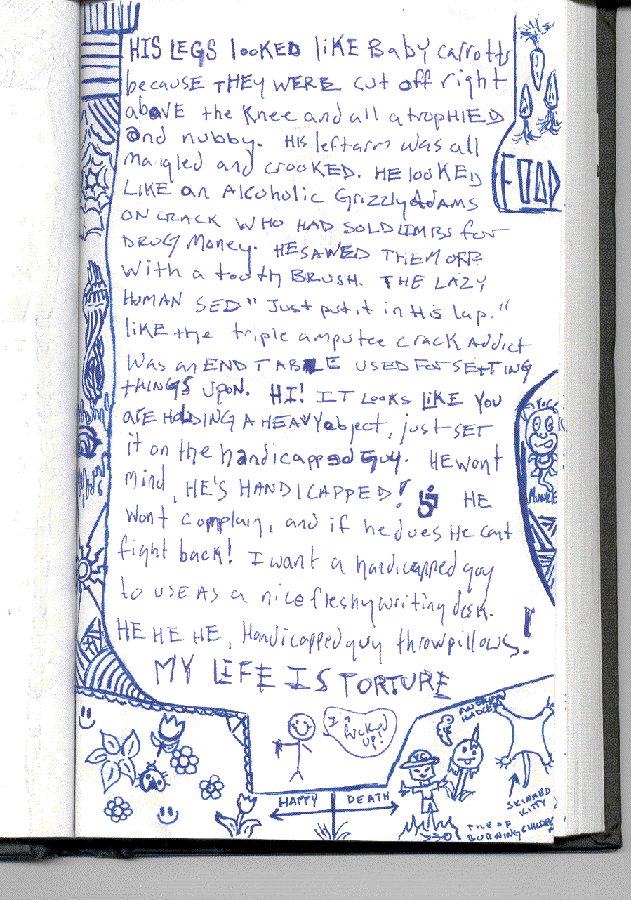 HIS LEGS looKED liKE Baby carrotts
because THEY WERE cut off right
aboVE the Knee and all atropHIED
and nubby. HIS left arm was all
mangled and crooKED. HE looKED
LIKE an Alcoholic Grizzly Adams
ON CRACK WHO HAD SOLD LIMBS for
DRUG Money. HE SAWED THEM OFF
with a tooth BRUSH. THE LAZY
HUMAN SED "Just put it in His lap."
like the triple amputee crack Addict
was an END TABLE USED FOR SETTING
tHINGS UPON. HI! IT LOOKS LIKE YOU
are HOLDING A HEAVY object, just SET
it on the handicapped Guy. HE wont
mind, HE'S HANDICAPPED! HE
wont complain, and if he does He cant
fight back! I want a handicapped guy
to USE AS a nice fleshy writing desk.
HE HE HE, Handicapped guy throw pillows!
MY LIFE IS TORTURE
FOOD
I'm
fucked
up!
HAPPY
DEATH
SKINNED
KITTY
PILE OF
BURNING CHILDREN